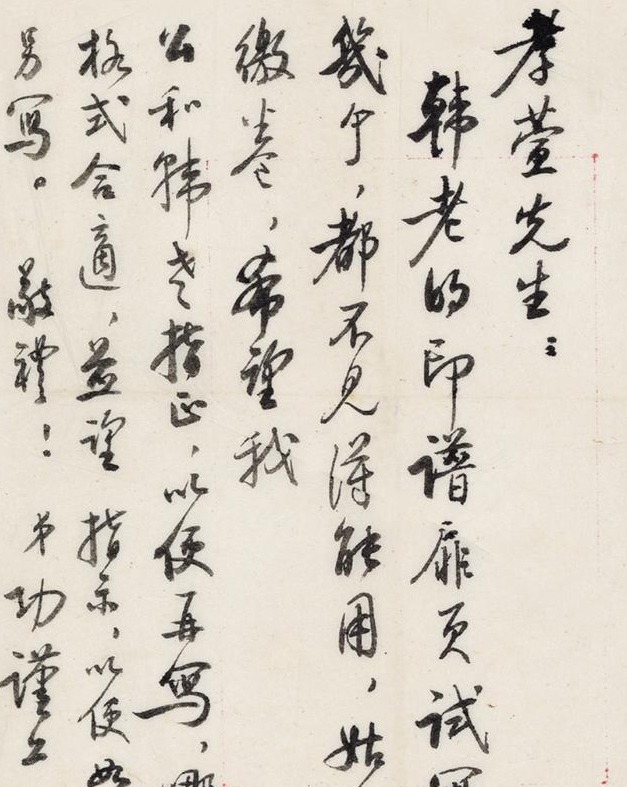 孝萱先生：
韩老的印谱扉页试写
几个，都不见得能用，姑
缴卷，希望我
公和韩老指正，以便再写，哪
格式合適，並望 指示，以便如
另写。 敬禮！ 弟功謹上